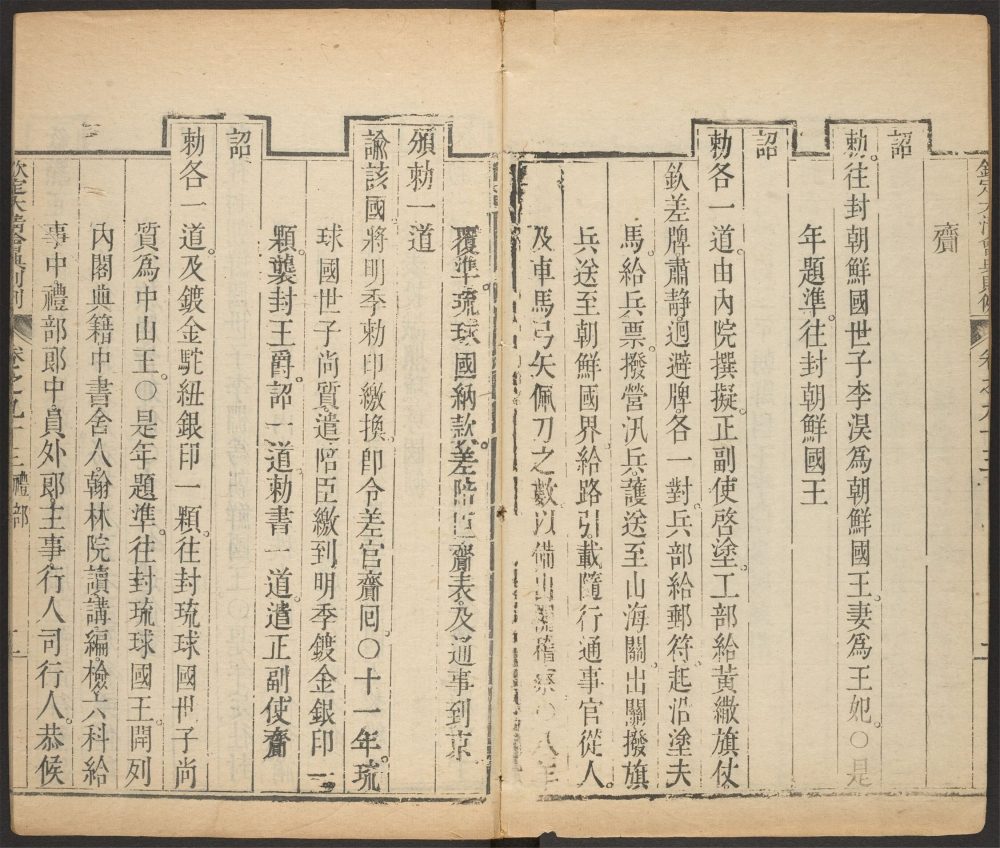 齎
詔
勅往封朝鮮國世子李淏為朝鮮國王妻為王妃○是
年題準往封朝鮮國王
詔
勅各一道由內院撰擬正副使啓塗工部給黃繖旗仗
欽差牌肅靜迴避牌各一對兵部給郵符起沿塗夫
馬給兵票撥營汛兵護送至山海關出關撥旗
兵送至朝鮮國界給路引載隨行通事官從人
及車馬弓矢佩刀之數以備出關稽察○八年
覆準琉球國納款差陪臣齎表及通事到京
頒勅一道
諭該國將明季勅印繳換即令差官齎回○十一年琉
球國世子尚質遣陪臣繳到明季鍍金銀印一
顆襲封王爵詔一道勅書一道遣正副使齎
詔
勅各一道及鍍金駝紐銀印一顆往封琉球國世子尚
質為中山王○是年題準往封琉球國王開列
內閣典籍中書舍人翰林院讀講編檢六科給
事中禮部郎中員外郎主事行人司行人恭候
欽定大清會典則例 卷之九十三 禮部 二